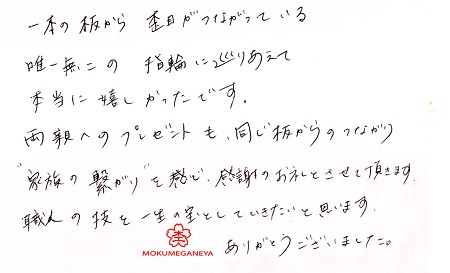 一本の板から 杢目がつながっている
唯一無二の 指輪に巡りあえて
本当に嬉しかったです。
両親へのプレゼントも、同じ板からのつながり
"家族の繋がり"を感じ、感謝のお礼とさせて頂きます。
職人の技を一生の宝としていきたいと思います。
杢
MOKUMEGANEYA
ありがとうございました。